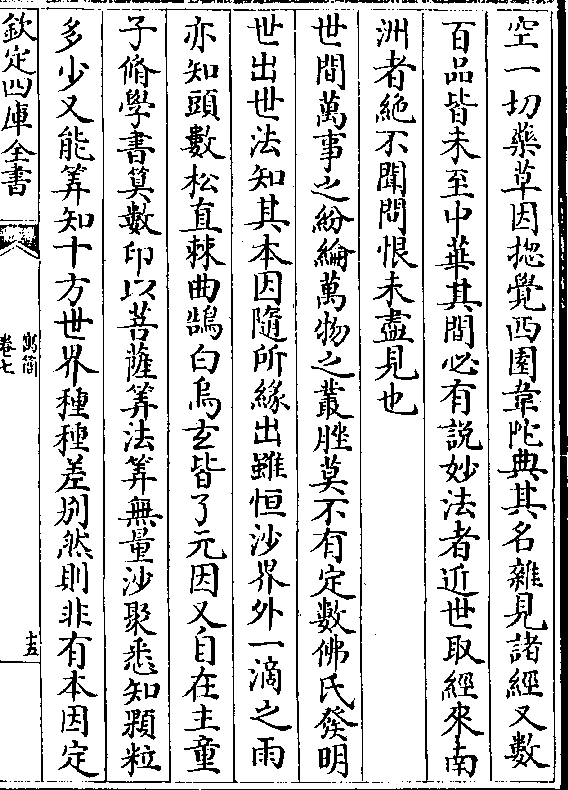 空一切藥草因揔覺西圍韋陀典其名雜見諸經又數
百品皆未至中華其間必有説妙法者近世取經來南
洲者絶不聞問恨未盡見也
世間萬事之紛綸萬物之叢脞莫不有定數佛氏發明
世出世法知其本因隨所緣出雖恒沙界外一滴之雨
亦知頭數松直棘曲鵠白烏玄皆了元因又自在主童
子脩學書算數印以菩薩筭法筭無量沙聚悉知顆粒
多少又能筭知十方世界種種差别然則非有本因定
欽定四庫全書
寓簡
卷七
十五